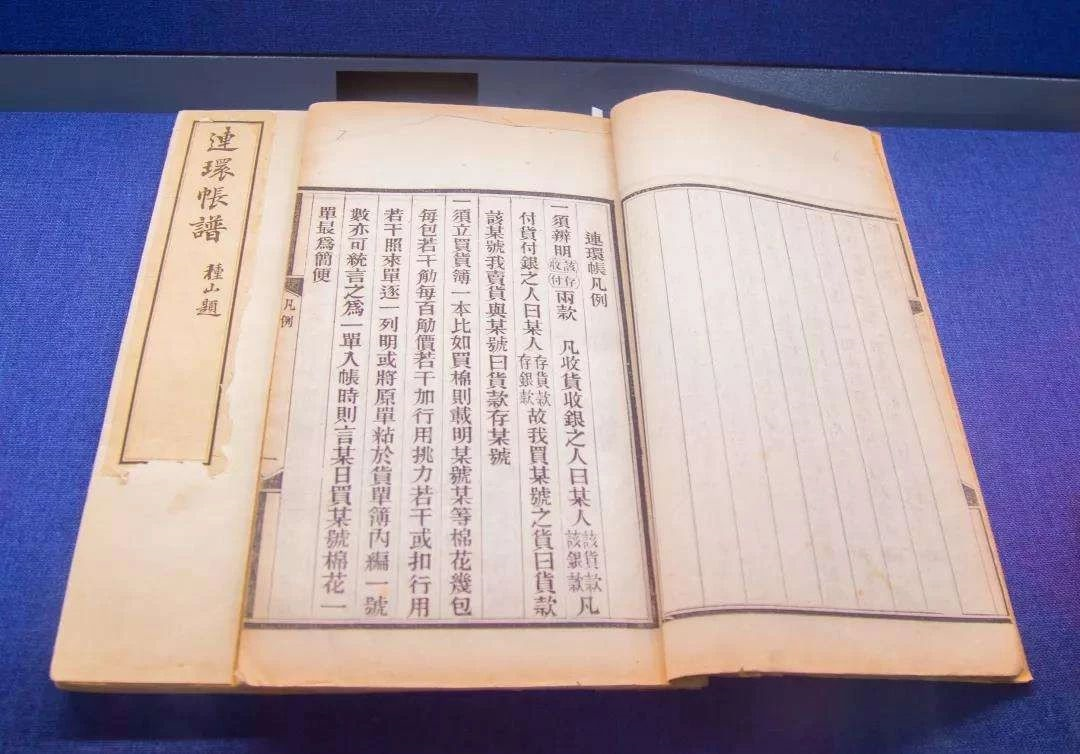 連環帳凡例
一須辨明該存收付兩款　凡收貨收銀之人曰某人該貨款該銀款凡
付貨付銀之人曰某人存貨款存銀款故我買某號之貨曰貨款
該某號我賣貨與某號曰貨款存某號
一須立買貨簿一本比如買棉則載明某號某等棉花幾包
每包若干觔每百觔價若干加行用挑力若干或扣行用
若干照來單逐一列明或將原單粘於貨單簿內編一號
數亦可統言之爲一單入帳時則言某日買某號棉花一
單最爲簡便
凡例
連環帳譜
種山題